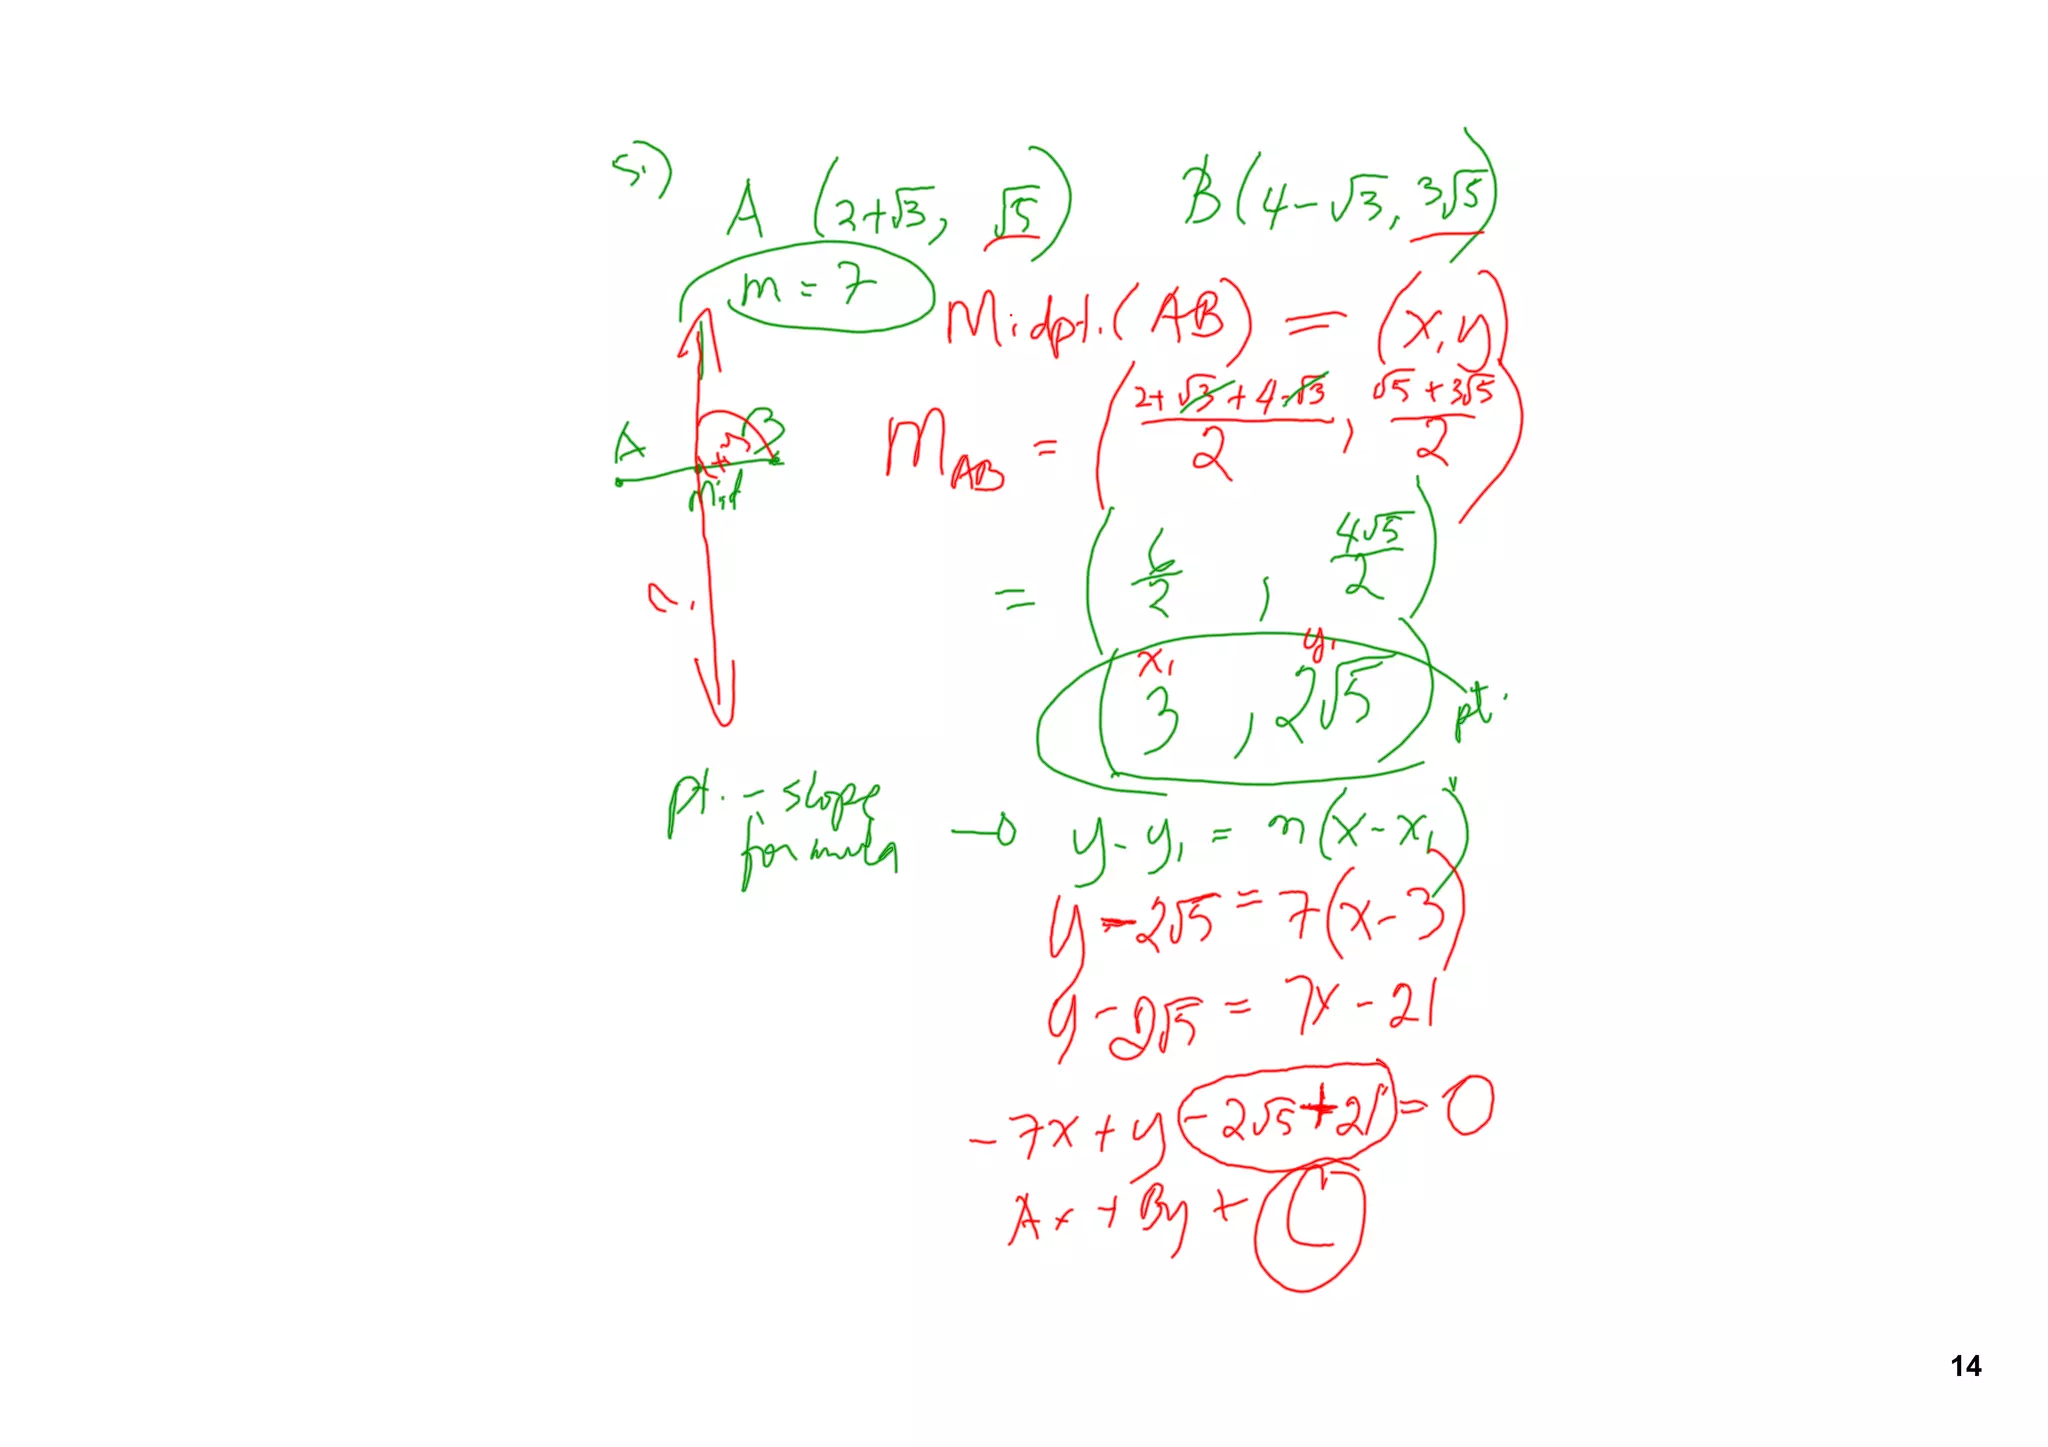 5.)
A (2+√3, √5) B(4-√3, 3√5)
m = 7
Midpt.(AB) = (x,y)
M_AB = ((2+√3+4-√3)/2, (√5+3√5)/2)
A B
Mid
= (6/2, 4√5/2)
x₁ y₁
(3, 2√5) pt.
pt. - slope formula → y-y₁ = m(x-x₁)
y-2√5 = 7(x-3)
y-2√5 = 7x-21
-7x+y-2√5+21=0
Ax+By+C
14